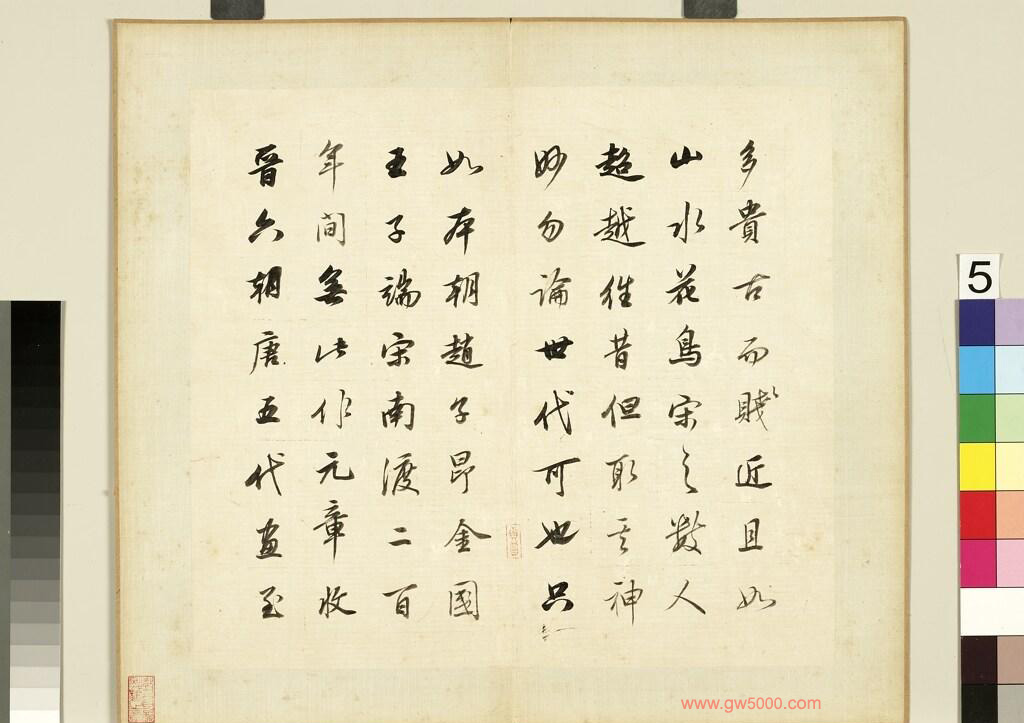 多貴古而賤近且如
山水花鳥宋之數人
超越往昔但取其神
妙勿論世代可也只
如本朝趙子昂金國
王子端宋南渡二百
年間無此作元章收
晉六朝唐五代畫至
5
www.gw5000.com